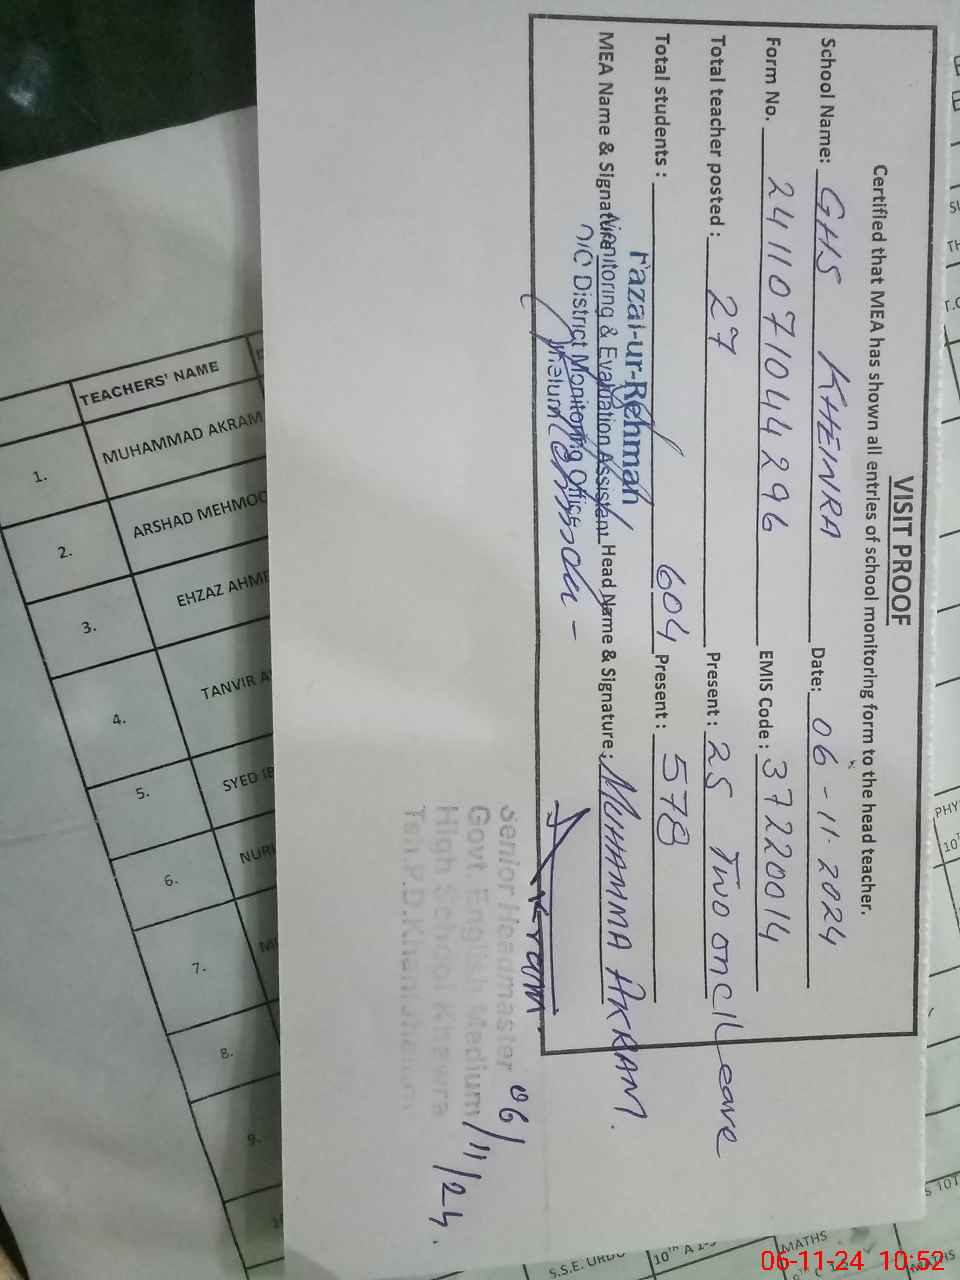 VISIT PROOF
Certified that MEA has shown all entries of school monitoring form to the head teacher.
School Name: GHS KHEWRA Date: 06-11-2024
Form No. 2411071044296 EMIS Code: 37220014
Total teacher posted: 27 Present: 25 Two on C/Leave
Total students: 604 Present: 578
Fazal-ur-Rehman
MEA Name & Signature Head Name & Signature: MUHAMMA AKRAM.
Monitoring & Evaluation Assistant
O/C District Monitoring Office
Jhelum
Akram
Senior Headmaster
Govt. English Medium
High School Khewra
Tsh.P.D.Khan(Jhelum)
06/11/24.
TEACHERS' NAME
1. MUHAMMAD AKRAM
2. ARSHAD MEHMOO
3. EHZAZ AHME
4. TANVIR A
5. SYED IB
6. NUR
7. M
8.
9.
S.S.E. URDU
10TH A
MATHS
PHY
10T
MATHS
06-11-24 10:52